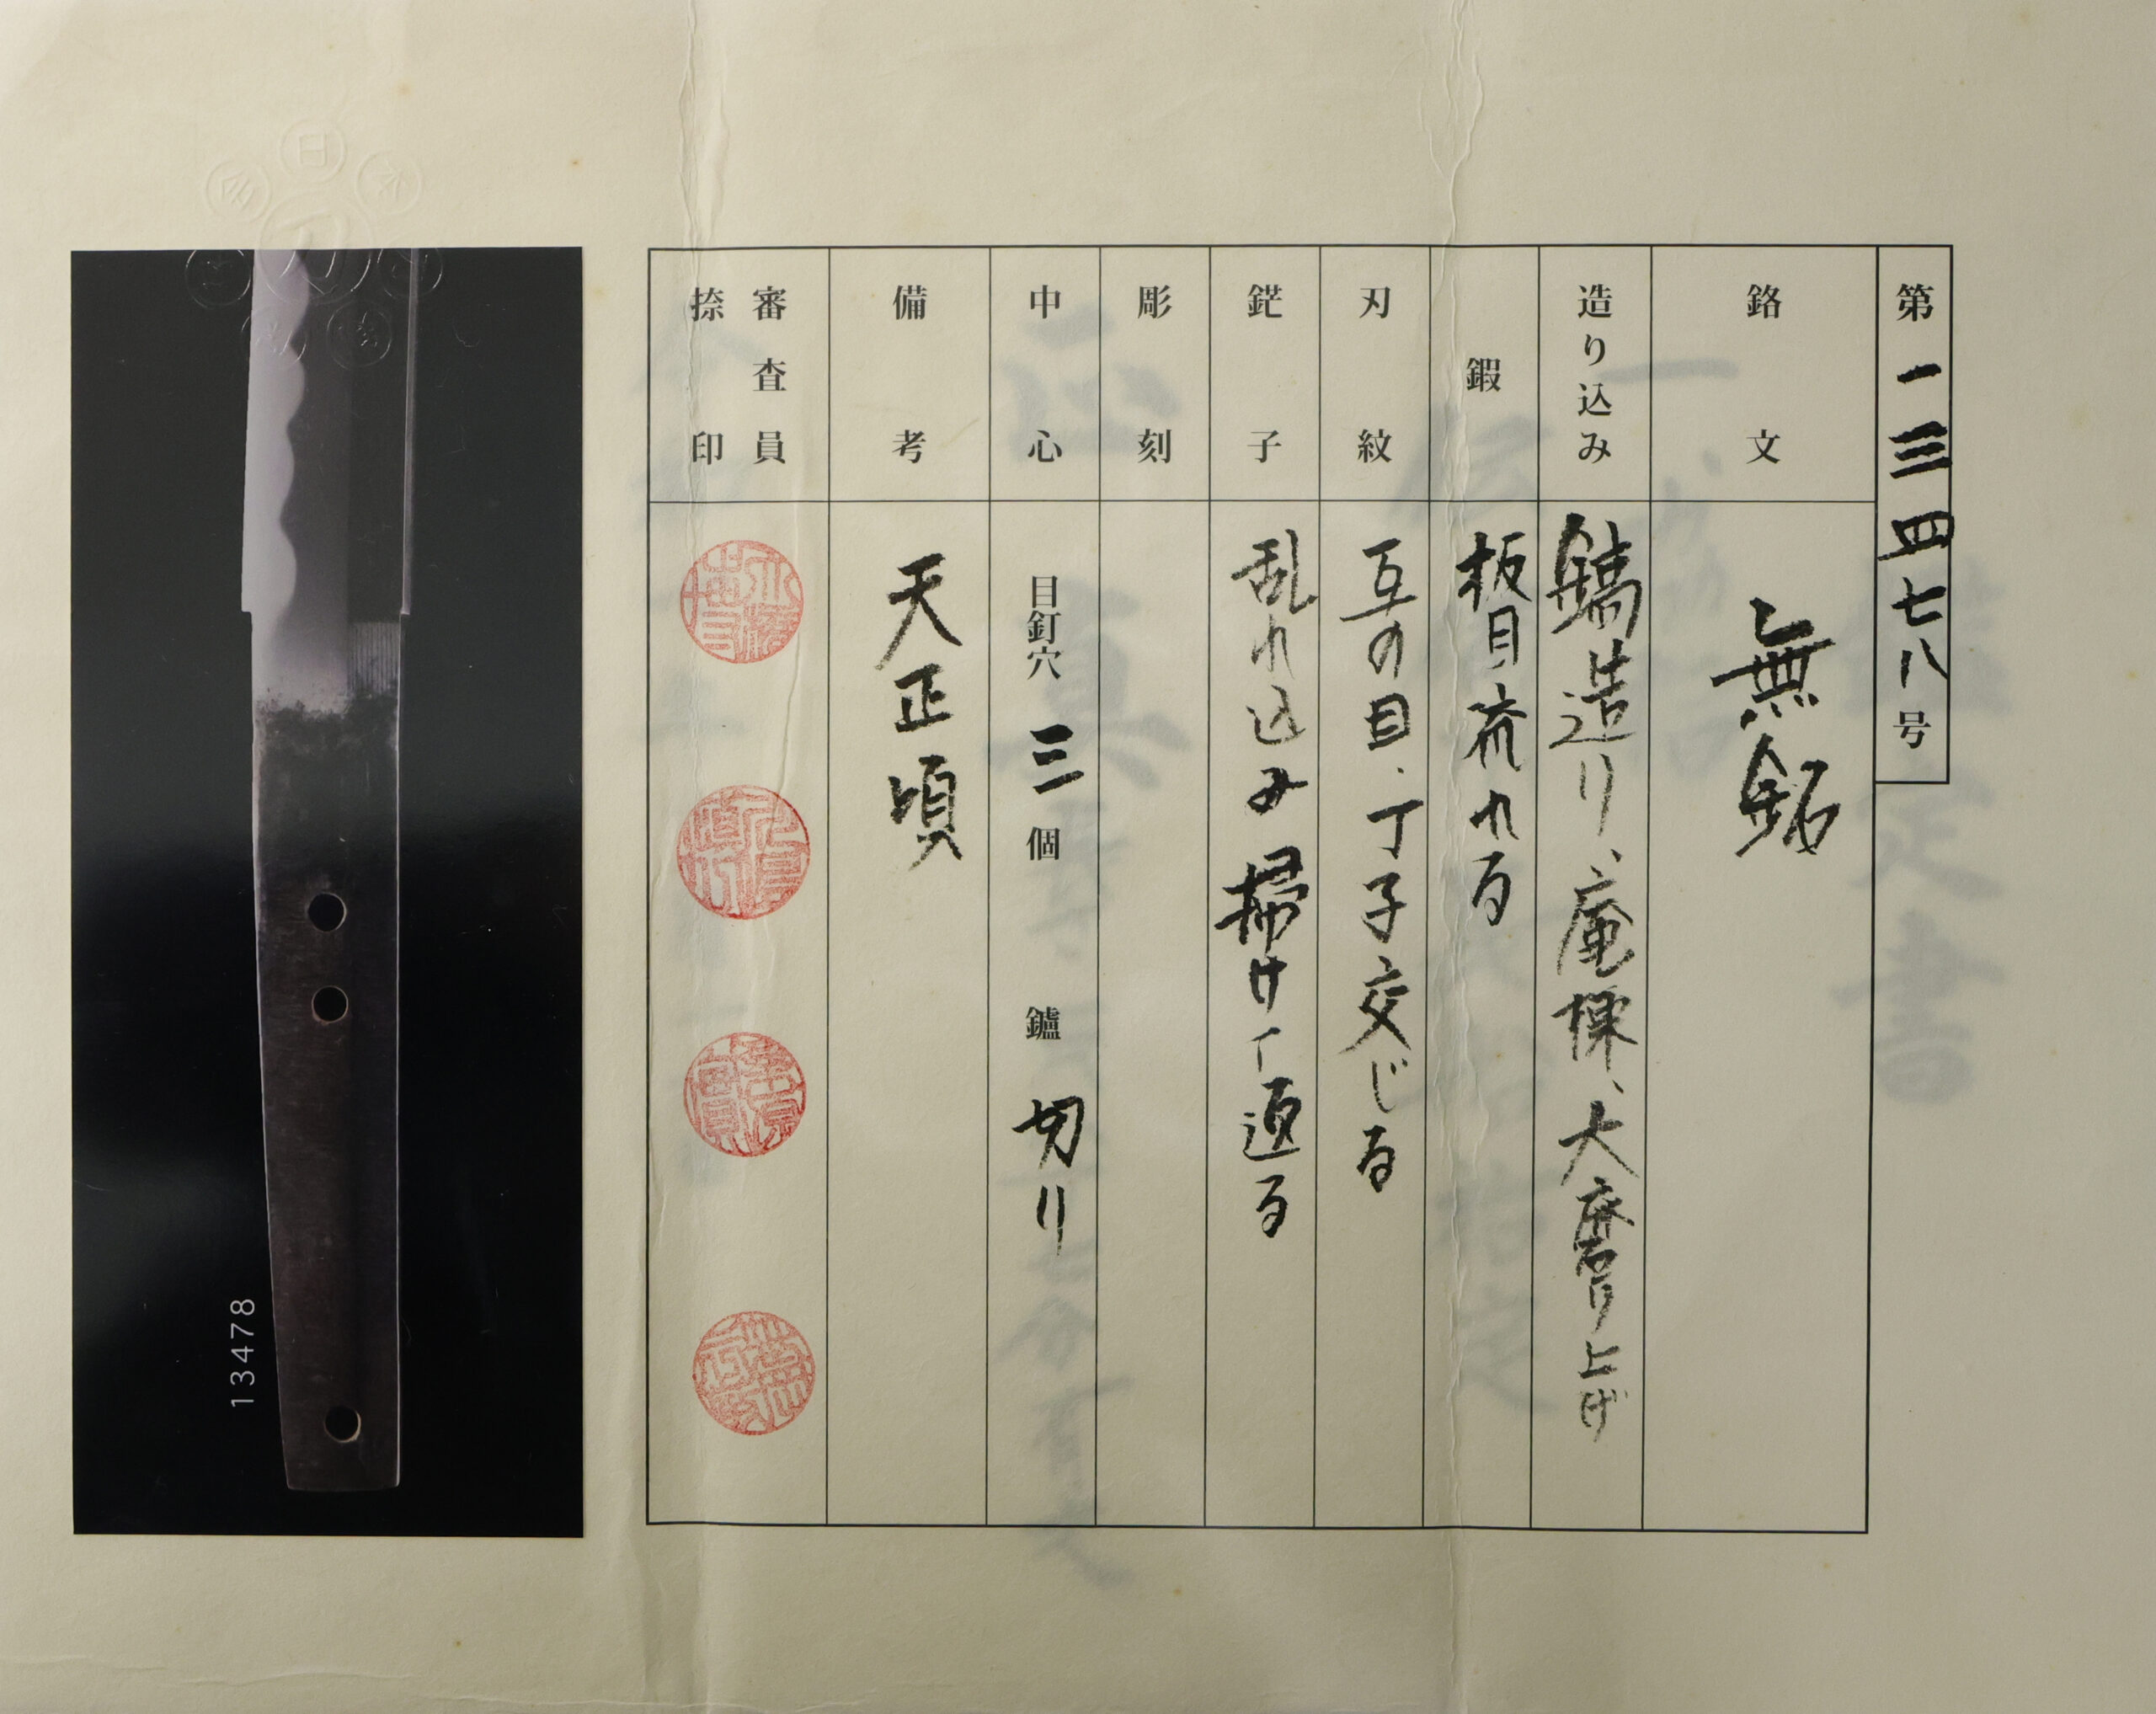 第一三四七八号
銘文 無銘
造り込み 鎬造り、庵棟、大磨り上げ
鍜 板目流れる
刃紋 互の目、丁子交じる
鋩子 乱れ込み掃けて返る
彫刻
中心 目釘穴 三 個 鑢 切り
備考 天正頃
審査員
捺印
13478